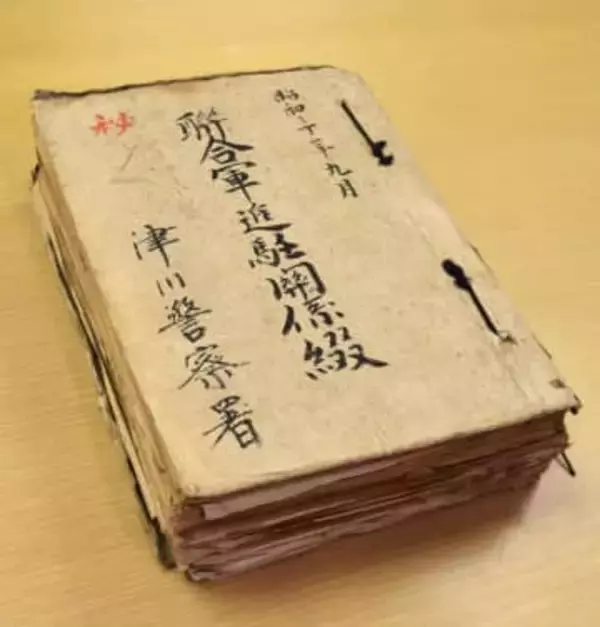 昭和二十年九月
秘
聯合軍進駐關係綴
津川警察署